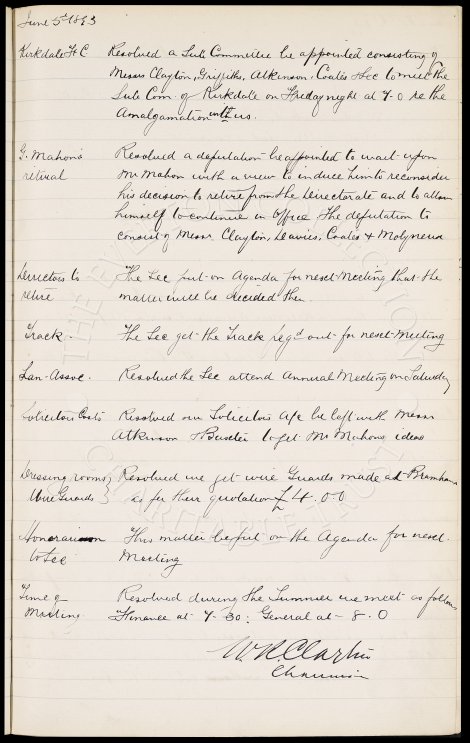 June 5th 1893
Kirkdale F.C. Resolved a Sub Committee be appointed consisting of
Messrs Clayton, Griffiths, Atkinson, Coates & Sec to meet the
Sub Com. of Kirkdale on Friday night at 7-0 re the
Amalgamation with us.
G. Mahon's Resolved a deputation be appointed to wait upon
retiral Mr Mahon with a view to induce him to reconsider
his decision to retire from the Directorate and to allow
himself to continue in Office. The deputation to
consist of Messrs Clayton, Davies, Coates & Molyneux
Directors to The Sec put on Agenda for next Meeting that the
retire matter will be decided then.
Track. The Sec get the Track reqd out for next Meeting
Lan. Assoc. Resolved the Sec attend Annual Meeting on Saturday
Solicitors Costs Resolved our Solicitors a/c be left with Messrs
Atkinson & Baxter to get Mr Mahons ideas
Dressing rooms } Resolved we get wire Guards made at
Wire Guards } as per their quotation £4.0.0
Honoraium This matter be put on the Agenda for next
to Sec Meeting
Time of Resolved during the Summer we meet as follows
Meeting Finance at 7-30: General at 8.0
Chairman
THE EVERTON COLLECTION
CHARITABLE TRUST